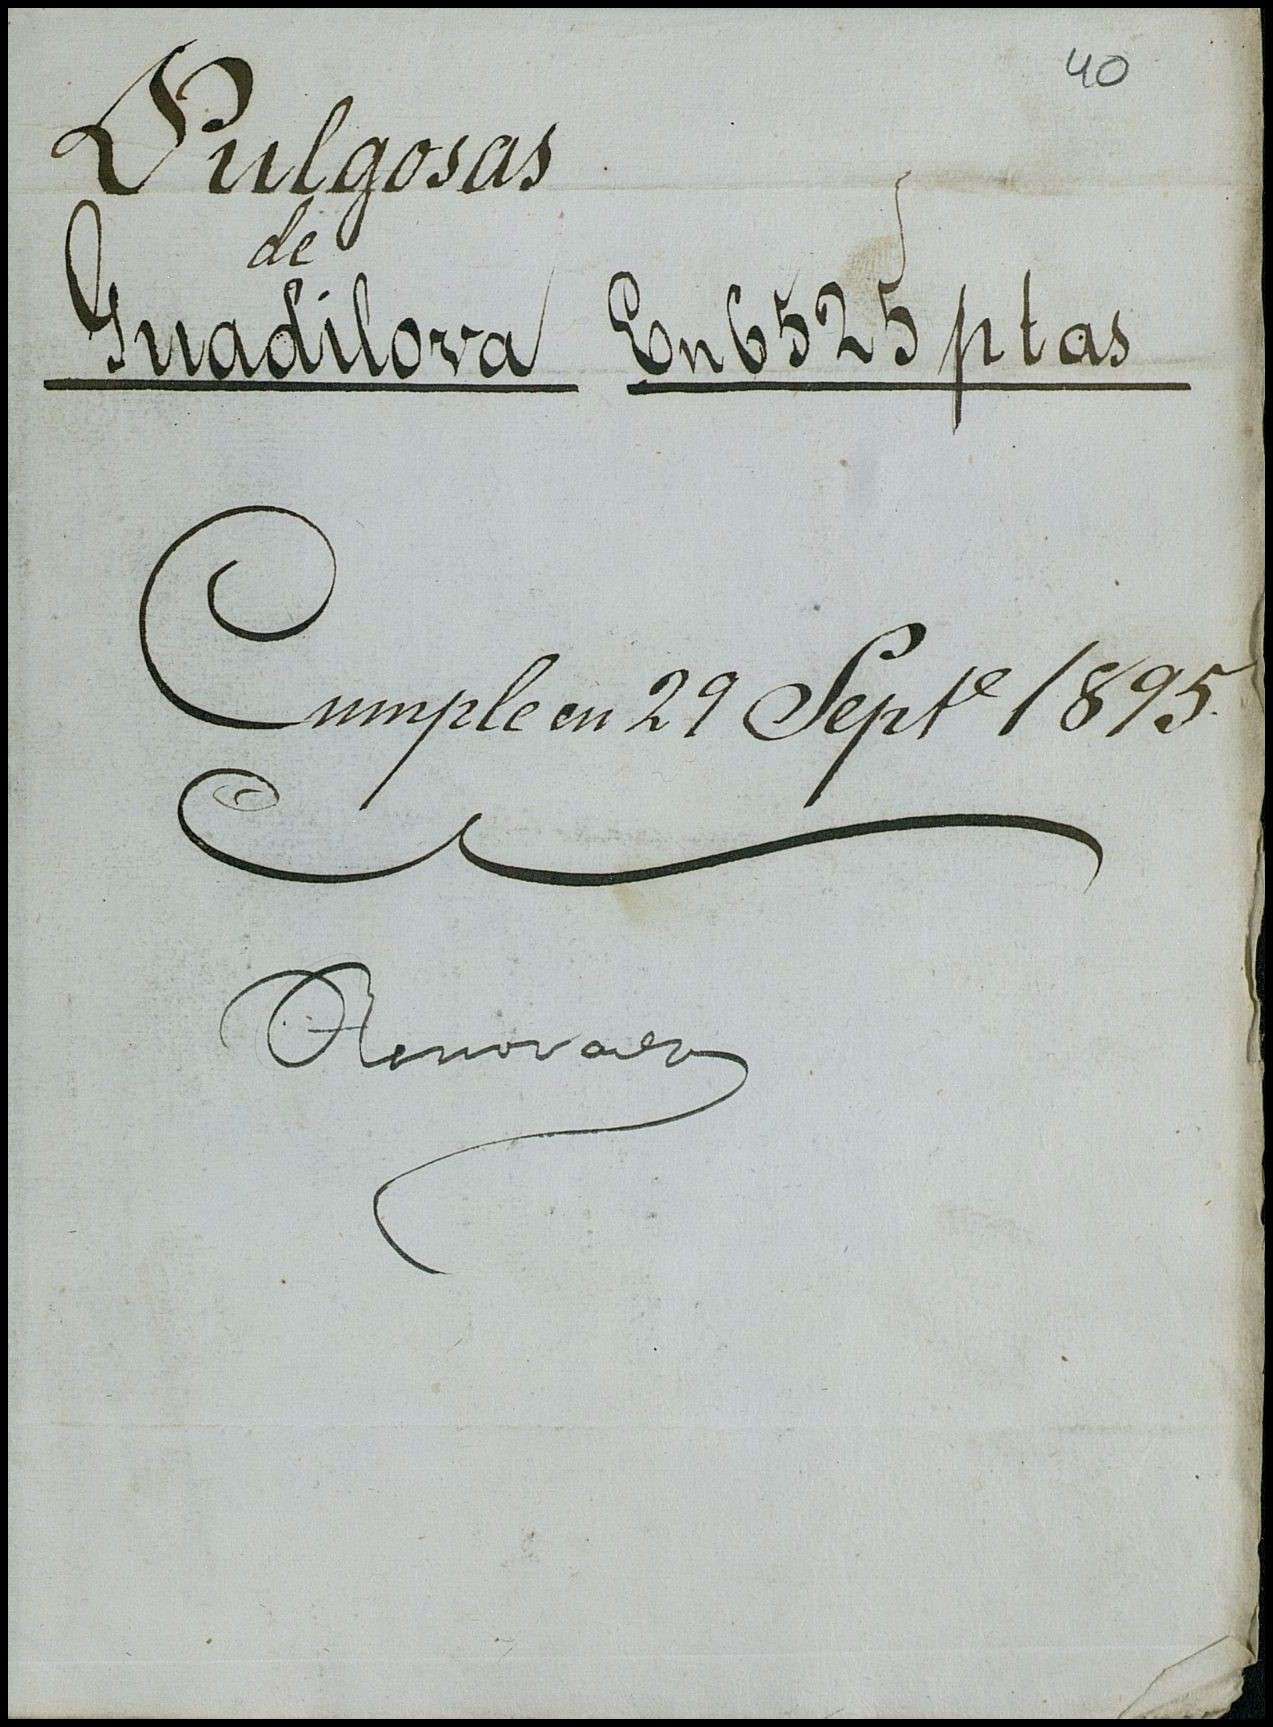 40
Pulgosas
de
Guadilova En 6525 ptas
Cumple en 29 Septe 1895.
Renovado